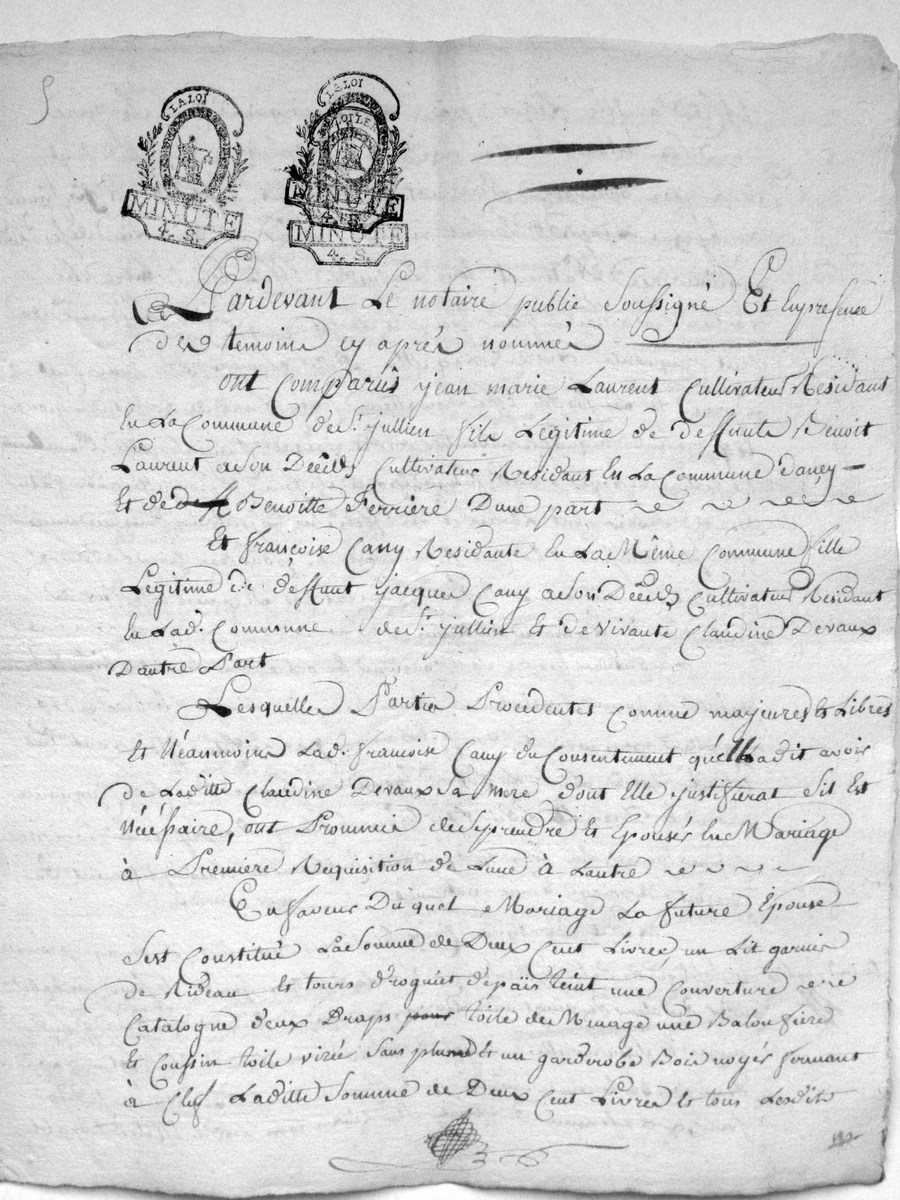 LA LOI
MINUTE
4. S.
LA LOI
MINUTE
4. S.
MINUTE
4. S.
Pardevant Le notaire public Soussigné Et En presence
des temoins cy après nommés
ont Comparûs jean marie Laurent Cultivateur Residant
En La Commune de St. jullien fils Légitime de deffunts Benoit
Laurent a Son Décéds Cultivateur Residant En La Commune d'ancy
Et de Benoitte Ferrière Dune part
Et françoise Cany Residante En La Même Commune fille
Légitime de deffunt jacques Cany a Son Décéds Cultivateur Residant
En Lad. Commune de St. jullien Et de vivante Claudine Devaux
Dautre Part
Lesquelles Parties Procedentes Comme majeures & Libres
Et Néanmoins Lad. francoise Cany du Consentement quelle adit avoir
de Laditte Claudine Devaux Sa mere d'ont Elle justifierat Sil Est
Nécéssaire, ont Promis de Se prendre Et Epousés En Mariage
à Première Requisition de Lune à Lautre
En faveur Du quel Mariage La future Epouse
Sest Constitué La Somme de Deux Cent Livres, un Lit garnis
de Rideau Et tours d'roguet d'epaïs teint une Couverture
Catalogne d'eux Draps toile de Menage une Balouffiere
Et Coussin toile virée Sans plume & un garderobe Bois noyés fermant
à Clef Laditte Somme de Deux Cent Livres & tous Lesdits